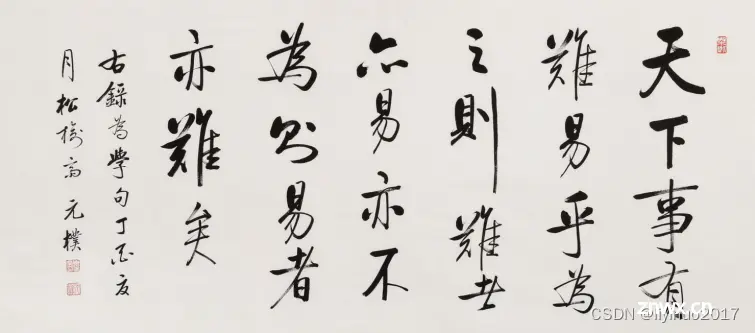 天下事有
難易乎為
之則難者
亦易亦不
為則易者
亦難矣
右錄為學句丁酉夏
月松高元樸
znwx.cn
CSDN